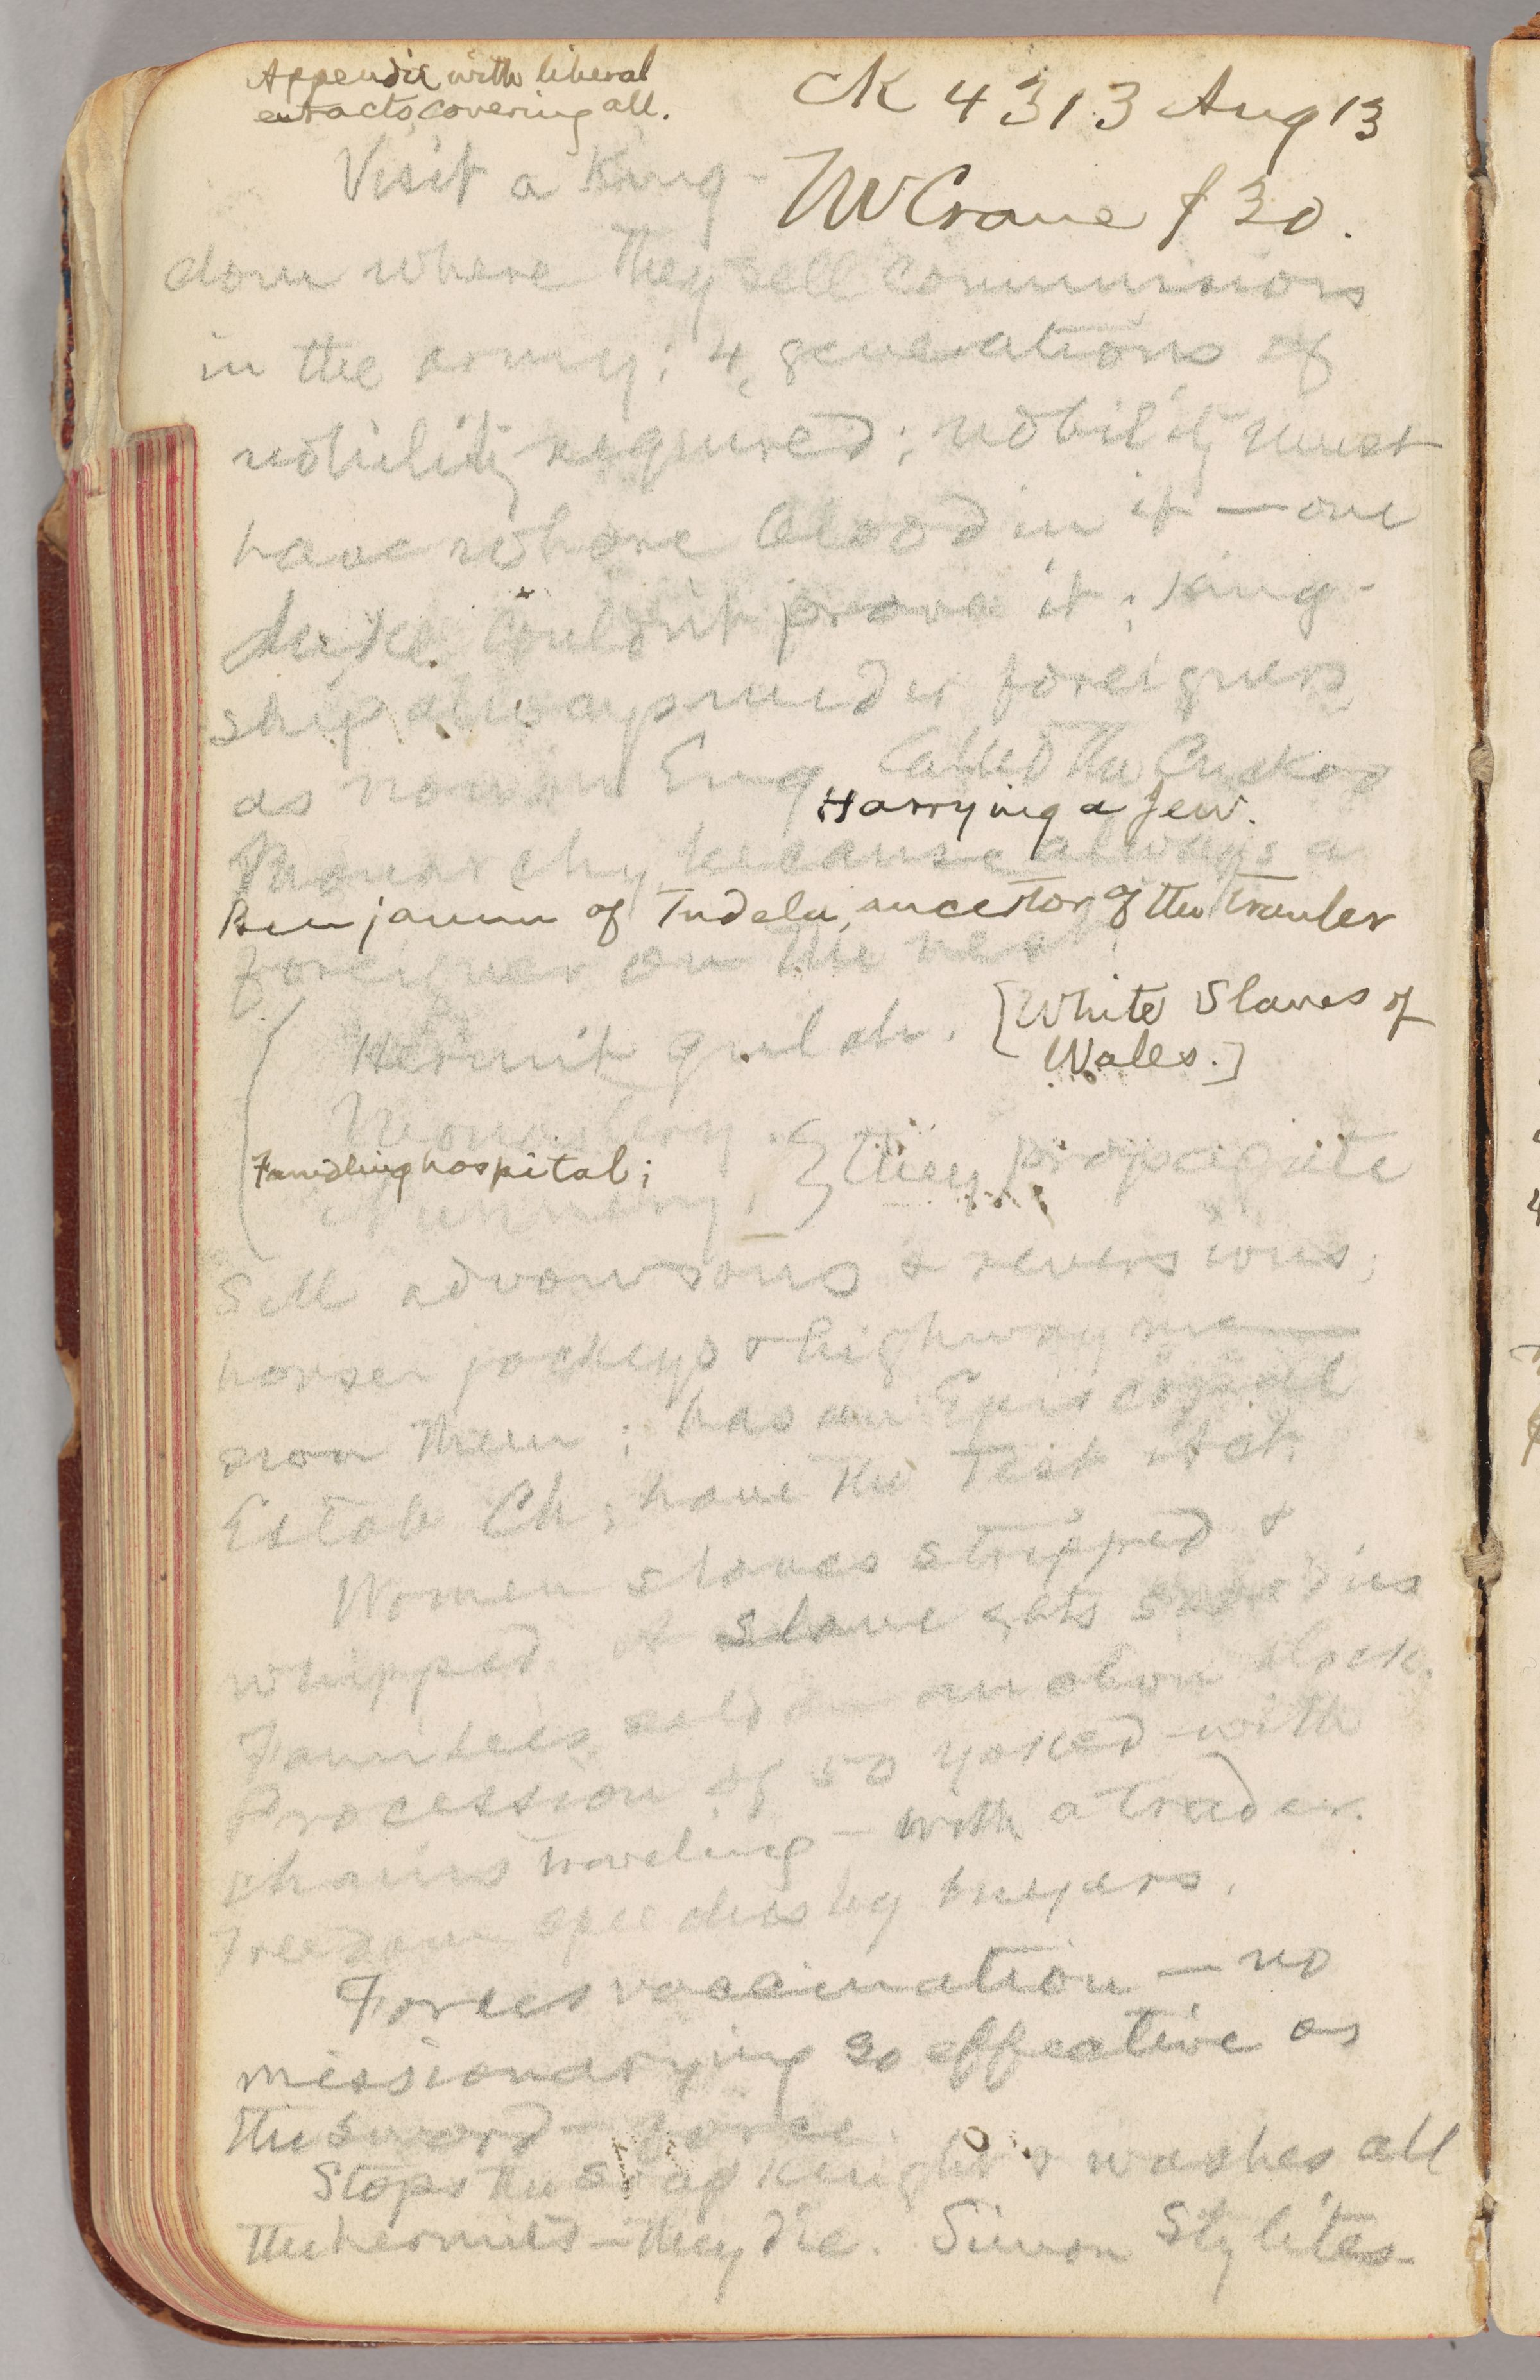 Appendix with liberal
extracts covering all.
Ck 4313 Aug 13
TW Crane $30.
Visit a King-
dom where they sell commissions
in the army; 4 generations of
nobility required; nobility must
have whore blood in it — one
duke couldn't prove it; king-
ship always under foreigners
as now in Eng Called the Cuckoo
Harrying a Jew.
Monarchy because always a
Benjamin of Tudela, ancestor of the traveler
foreigner on the nest.
Hermit gulch.
[White Slaves of
Wales.]
Monastery.
Foundling hospital;
Nunnery. } they propagate
Sell advowsons & reversions;
horse jockeys & highwaymen
own them; has an Episcopal
Estab Ch; have the Test Act.
Women slaves stripped &
whipped. A slave gets
Families sold on auction block.
Procession of 50 yoked with
chains traveling — with a trader.
Freedom speeches by buyers.
Forces vaccination — no
missionarying so effective as
the sword — force.
Stops the soap Knight & washes all
the hermits — they die. Simon Stylites